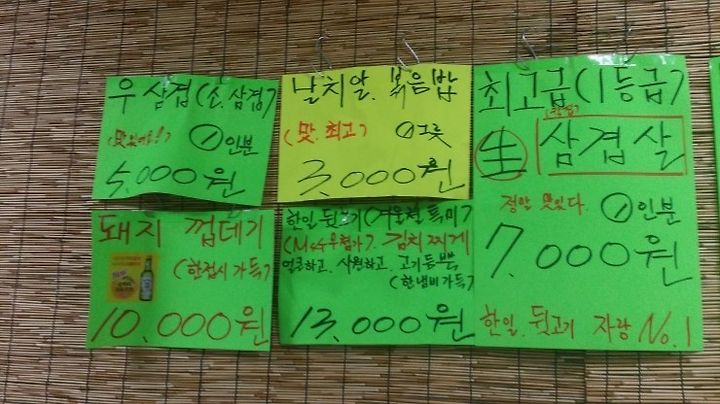 우삼겹(소.삼겹)
(맛있어!) ①인분
5,000원
날치알.볶음밥
(맛.최고) ①그릇
3,000원
최고급(1등급)
生 삼겹살
정말 맛있다. ①인분
7,000원
한일.뒷고기 자랑 No.1
돼지 껍데기
(한접시 가득)
10,000원
한일 뒷고기(겨울철 특미)
김치찌게
얼큰하고.시원하고.고기듬뿍
(한냄비가득)
13,000원